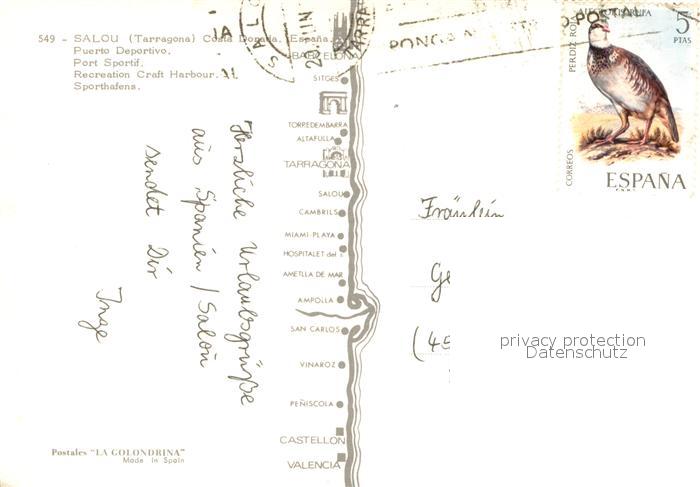 549 - SALOU (Tarragona) Costa Dorada. España.
Puerto Deportivo.
Port Sportif.
Recreation Craft Harbour.
Sporthafens.
BARCELONA
SITGES
TORREDEMBARRA
ALTAFULLA
TARRAGONA
SALOU
CAMBRILS
MIAMI-PLAYA
HOSPITALET del
AMETLLA DE MAR
AMPOLLA
SAN CARLOS
VINAROZ
PEÑISCOLA
CASTELLON
VALENCIA
Herzliche Urlaubsgrüße
aus Spanien / Salou
sendet Dir
Inge
Postales "LA GOLONDRINA"
Made in Spain
5
PTAS
PERDIZ
CORREOS
ESPAÑA
Fräulein
Ge
(45
privacy protection
Datenschutz